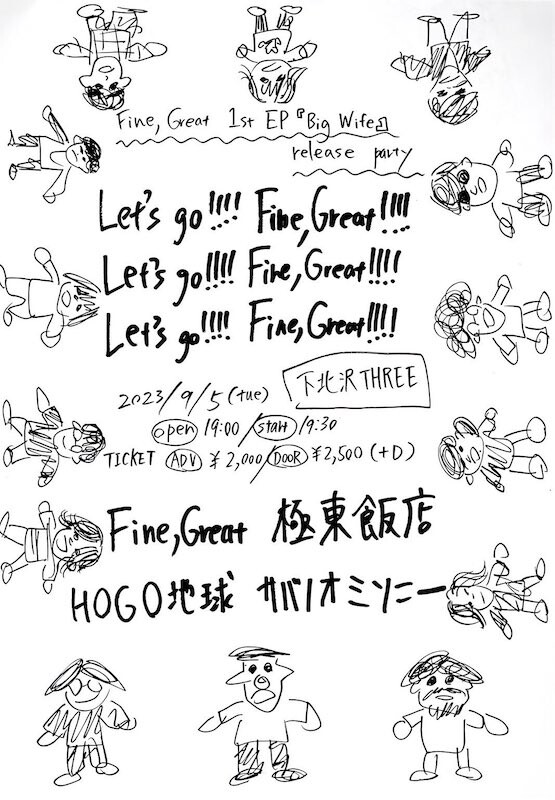 Fine, Great 1st EP『Big Wife』
release party
Let's go!!!! Fine, Great!!!!
Let's go!!!! Fine, Great!!!!
Let's go!!!! Fine, Great!!!!
2023/9/5(tue) 下北沢THREE
open 19:00/start 19:30
TICKET ADV ¥2,000/DOOR ¥2,500 (+D)
Fine, Great 極東飯店
HOGO地球 サバノオミソニー